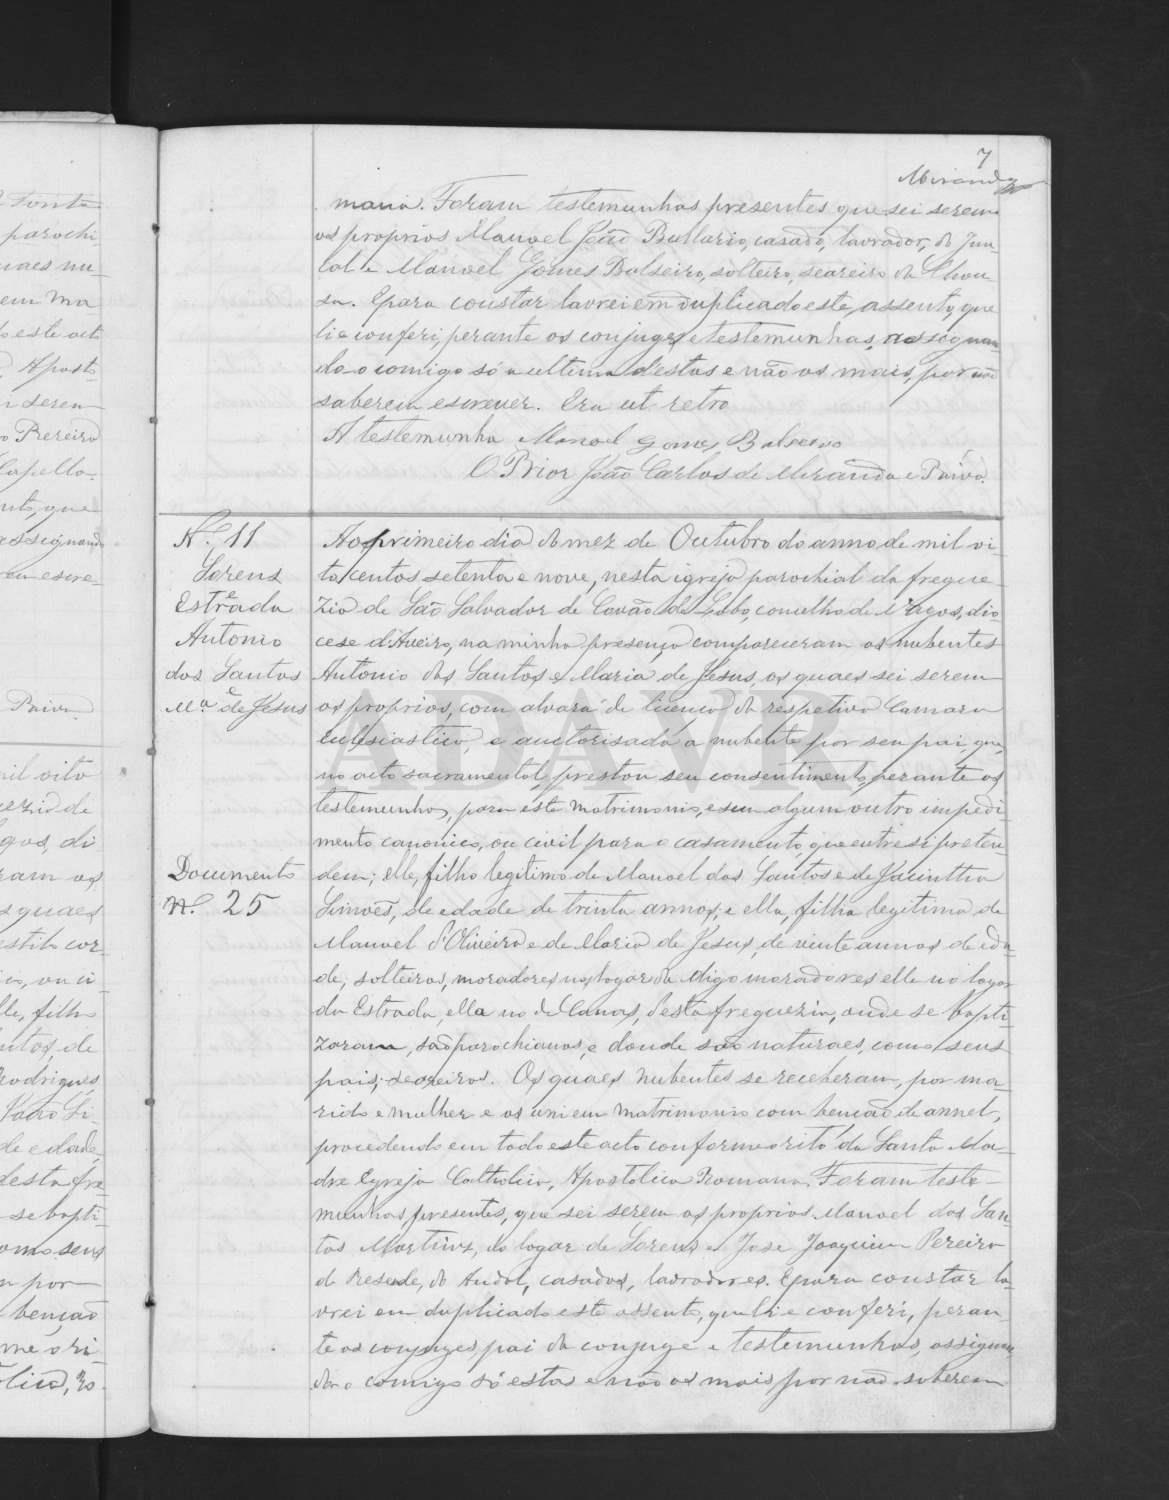 7
Miranda
mana. Foram testemunhas presentes, que sei serem
os proprios Manoel João Bullario, casado, lavrador, do Jun-
cal e Manoel Gomes Balseiro, solteiro, seareiro da Chou-
sa. E para constar lavrei em duplicado este assento, que
li e conferi, perante os conjuges e testemunhas, assignan-
do-o comigo só a ultima d'estas e não os mais, por não
saberem escrever. Era ut retro
A testemunha Manoel Gomes Balseiro
O Prior João Carlos de Miranda e Paiva.
N.º 11
Sorens
Estrada
Antonio
dos Santos
e
M.ª de Jesus
Documento
N.º 25
Ao primeiro dia do mez de Outubro do anno de mil oi-
to centos setenta e nove, nesta igreja parochial da fregue-
zia de São Salvador de Covão do Lobo, concelho de Vagos, dio-
cese d'Aveiro, na minha presença compareceram os nubentes
Antonio dos Santos e Maria de Jesus, os quaes sei serem
os proprios, com alvará de licença da respetiva Camara
Eclesiastica, e auctorisada a nubente por seu pai, que,
no acto sacramental, prestou seu consentimento, perante as
testemunhas, para este matrimonio, e sem algum outro impedi-
mento canonico, ou civil para o casamento, que entre si preten-
dem; elle, filho legitimo de Manoel dos Santos e de Jacintha
Simões, de edade de trinta annos; e ella, filha legitima de
Manoel d'Oliveira e de Maria de Jesus, de vinte annos de eda-
de, solteiros, moradores no logar da digo moradores elle no logar
da Estrada, ella no de Canas, desta freguezia, onde se bapti-
zaram, são parochianos, e donde são naturaes, como seus
pais, seareiros. Os quaes nubentes se receberam, por ma-
rido e mulher e os uni em matrimonio com benção de annel,
procedendo em todo este acto conforme o rito da Santa Ma-
dre Egreja Catholica, Apostolica Romana. Foram teste-
munhas presentes, que sei serem os proprios Manoel dos San-
tos Martins, do logar de Sorens e Jose Joaquim Pereira
de Resende, do Andal, casados, lavradores. E para constar la-
vrei em duplicado este assento, que li e conferi, peran-
te os conjuges, pai da conjuge e testemunhas, assignan-
do-o comigo só estas e não os mais por não saberem
ADAVR